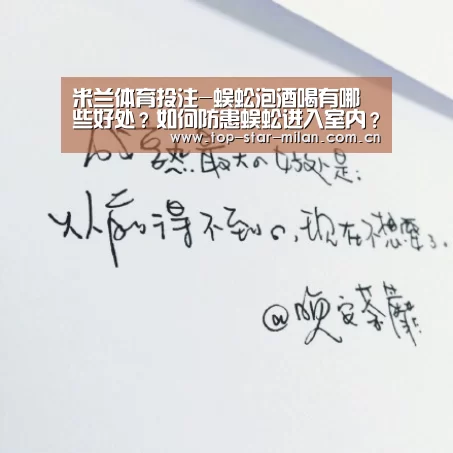 米兰体育投注-蜈蚣泡酒喝有哪
些好处？如何防患蜈蚣进入室内？
www.top-star-milan.com.cn
最大の好处是：
从前得不到的，现在不想要了。
@晚安荼蘼